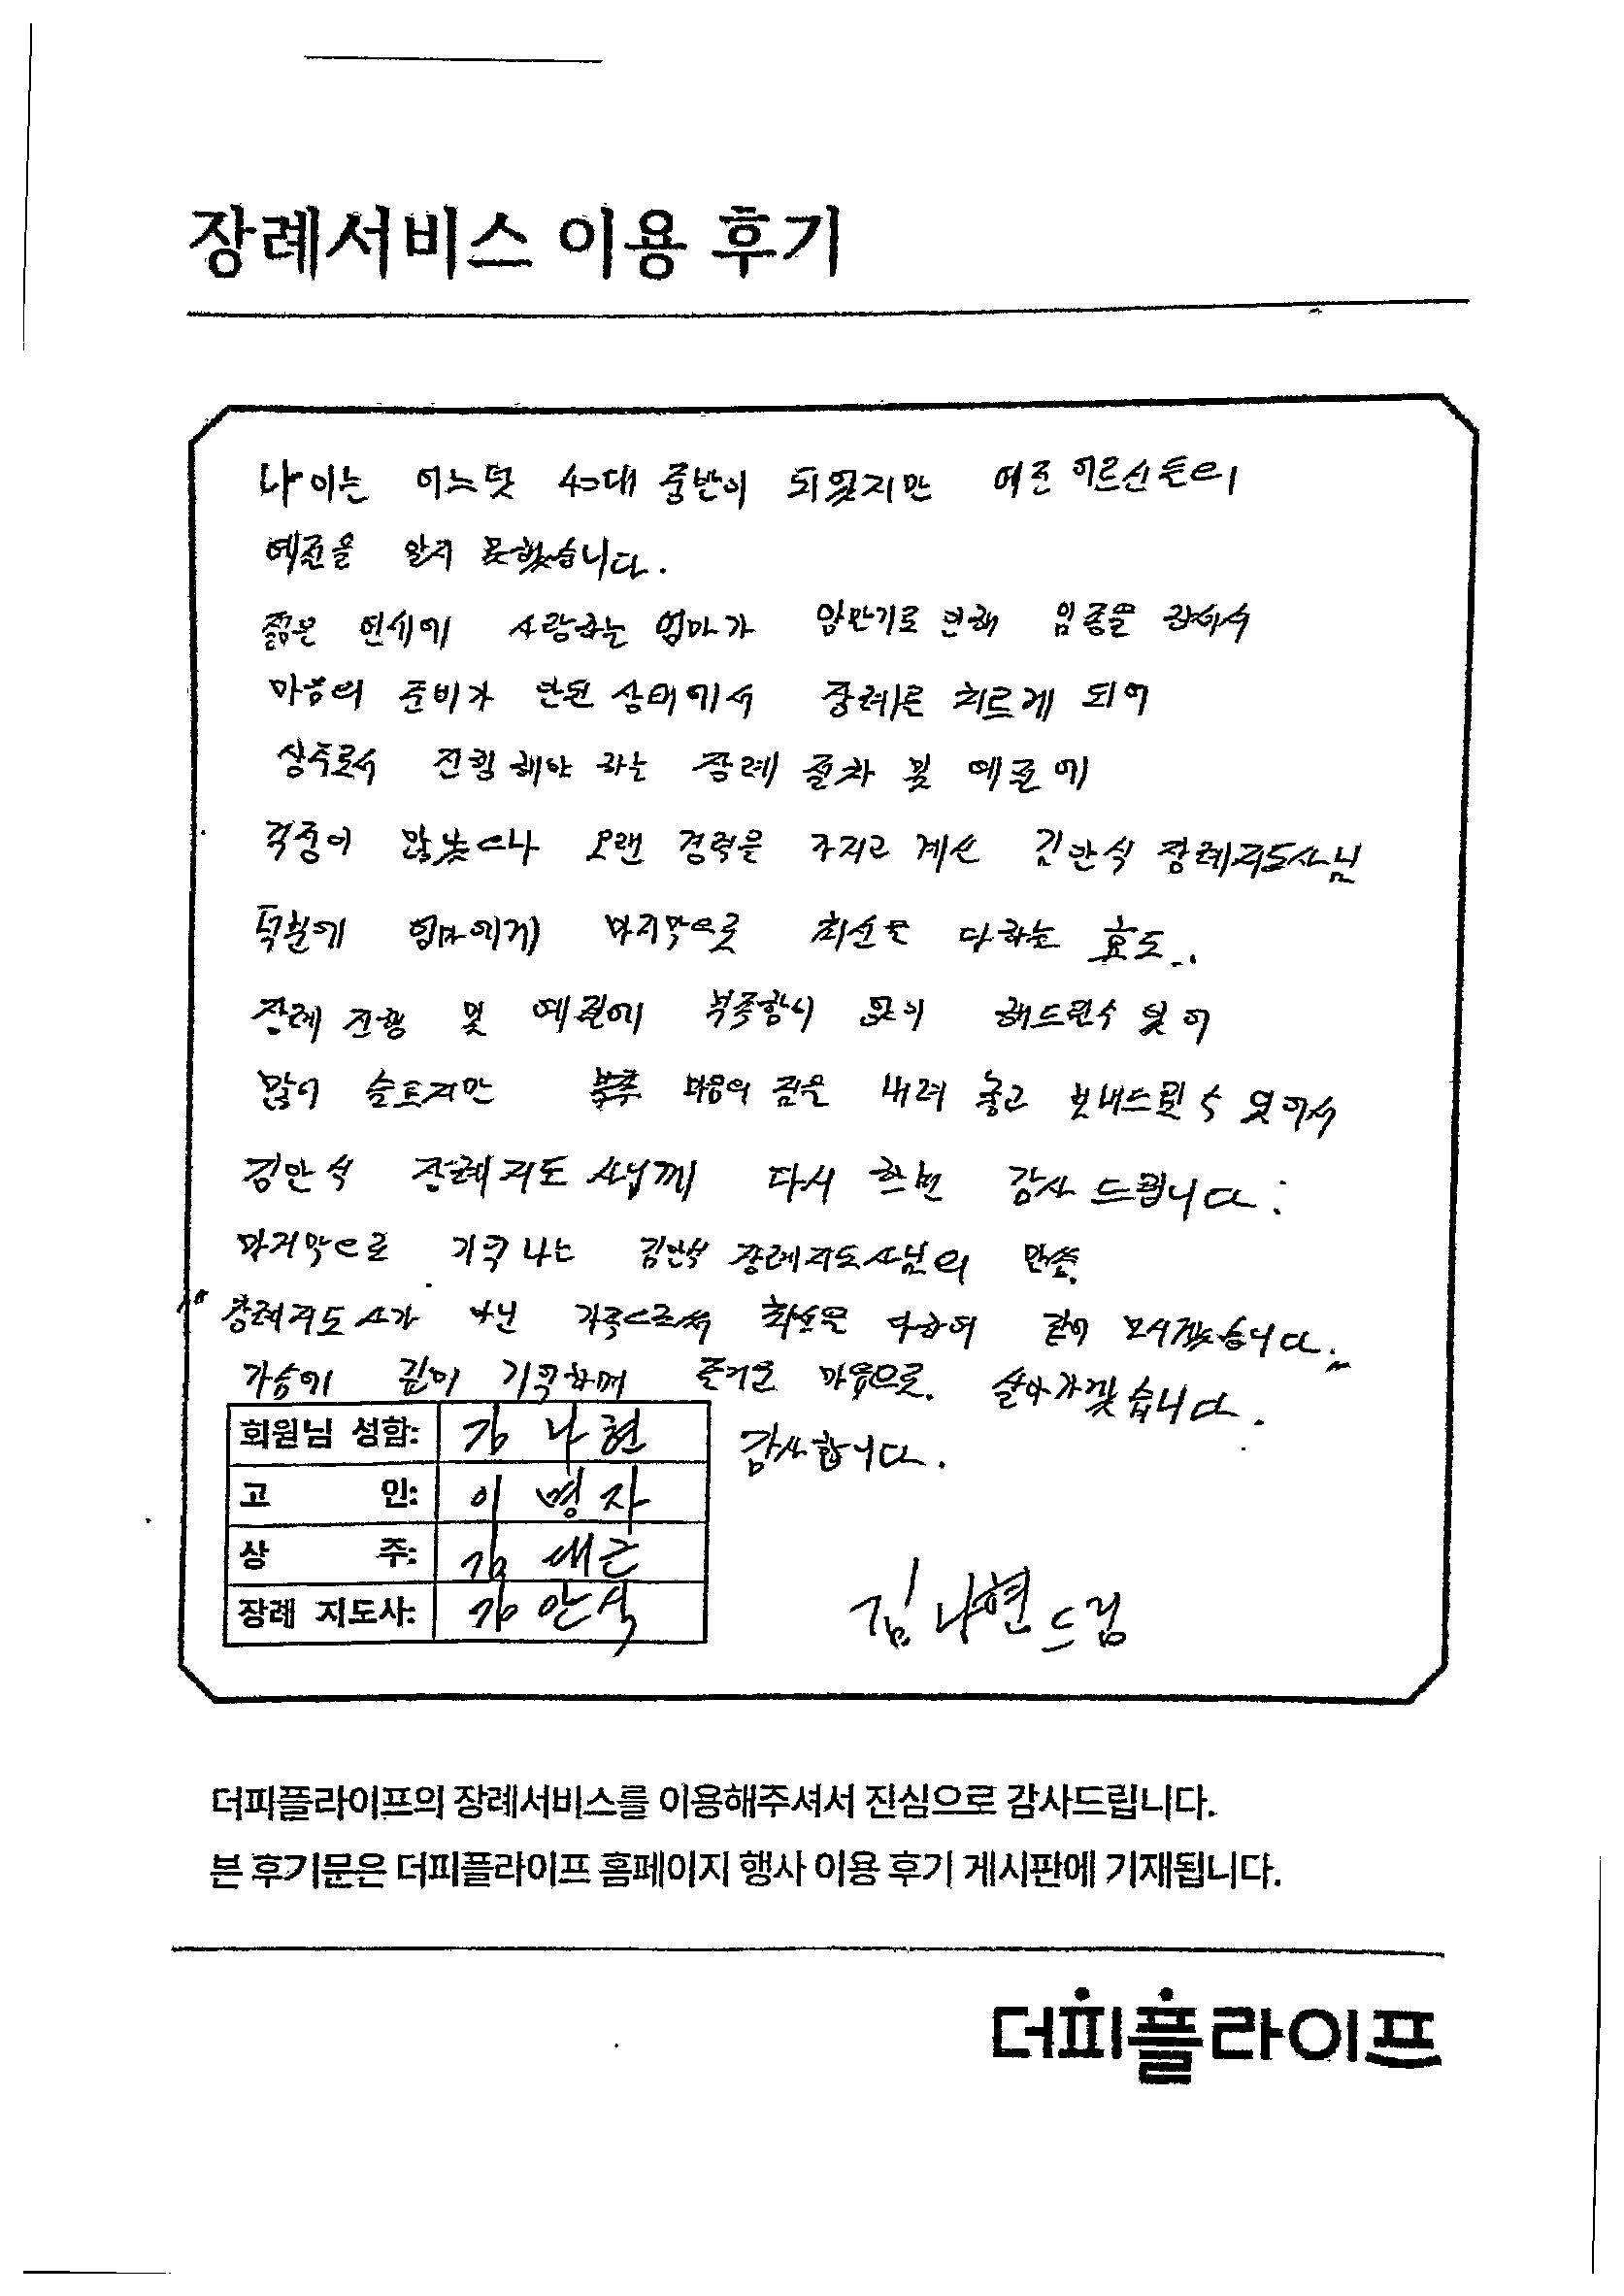 장례서비스 이용 후기
나이는 어느덧 40대 중반이 되었지만 예전 어르신들의
예절을 알지 못했습니다.
젊은 연세에 사랑하는 엄마가 암말기로 인해 임종을 하셔서
마음의 준비가 안된 상태에서 장례를 치르게 되어
상주로서 진행 해야 하는 장례 절차 및 예절에
걱정이 많았으나 오랜 경력을 가지고 계신 김안식 장례지도사님
덕분에 엄마에게 마지막으로 최선을 다하는 효도..
장례 진행 및 예절에 부족함이 없이 해드릴수 있어
많이 슬프지만 마음의 짐을 내려 놓고 보내드릴 수 있어서
김안식 장례지도사님께 다시 한번 감사 드립니다.
마지막으로 기억 나는 김안식 장례지도사님의 말씀.
"장례지도사가 아닌 가족으로서 최선을 다하여 같이 모시겠습니다."
가슴에 깊이 기억하며 즐거운 마음으로. 살아가겠습니다.
감사합니다.
회원님 성함: 김나현
고 인: 이병자
상 주: 김대근
장례 지도사: 김안식
김나현 드림
더피플라이프의 장례서비스를 이용해주셔서 진심으로 감사드립니다.
본 후기문은 더피플라이프 홈페이지 행사 이용 후기 게시판에 기재됩니다.
더피플라이프